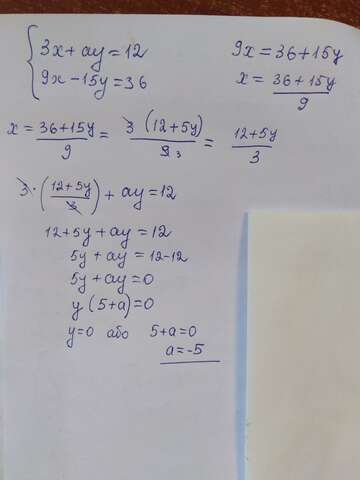 3x + ay = 12
9x - 15y = 36
9x = 36 + 15y
x = 36 + 15y / 9
x = 36 + 15y / 9 = 3 (12 + 5y) / 9 3 = 12 + 5y / 3
3 · (12 + 5y / 3) + ay = 12
12 + 5y + ay = 12
5y + ay = 12 - 12
5y + ay = 0
y (5 + a) = 0
y = 0 або 5 + a = 0
a = -5